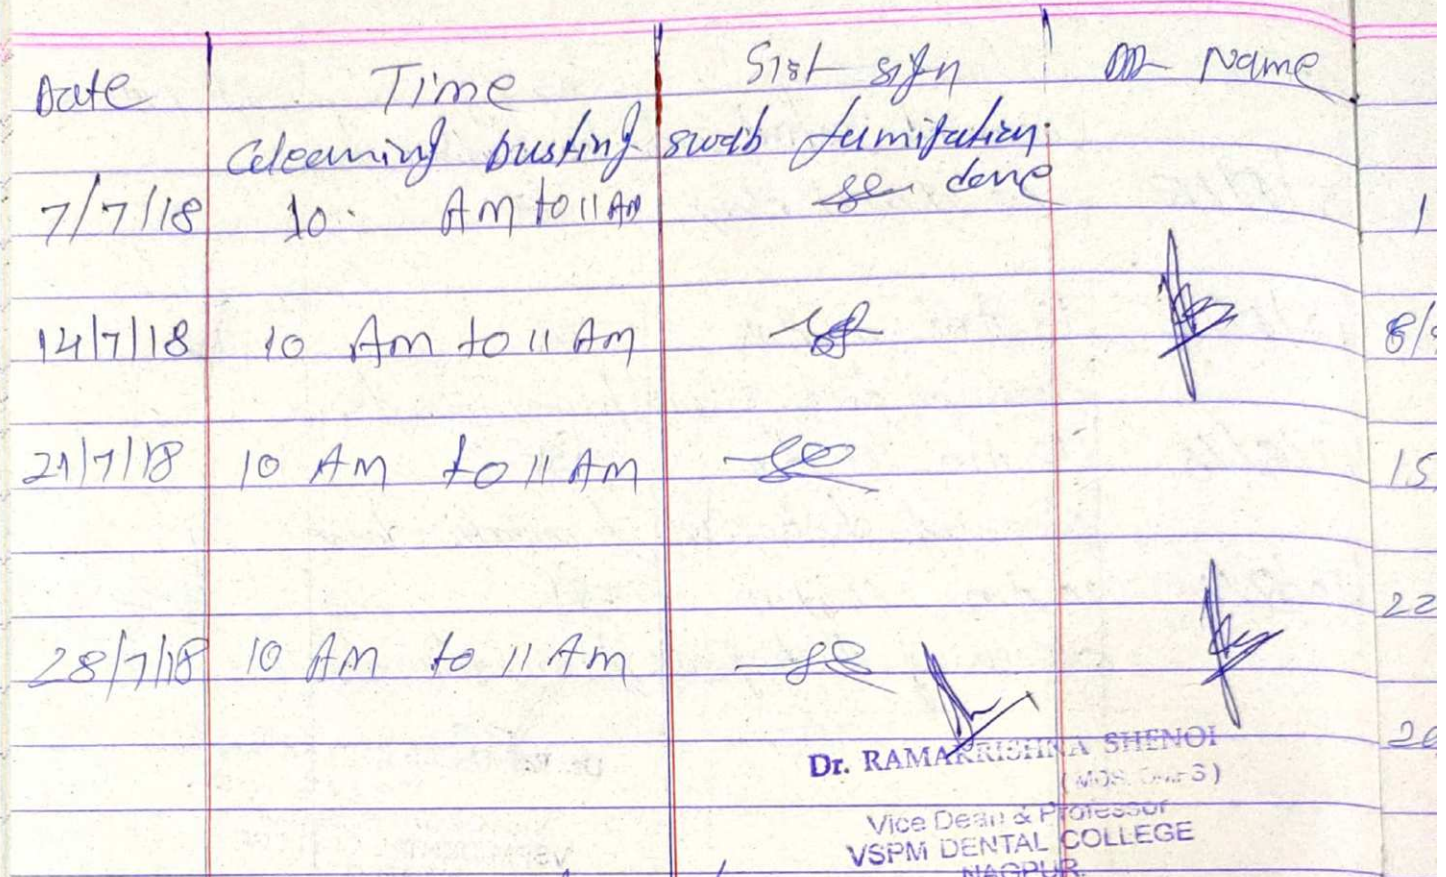 Date Time Sist sign Dr Name
Celeaning Dusting swab fumifation
done
7/7/18 10 AM to 11 AM
14/7/18 10 Am to 11 Am
21/7/18 10 AM to 11 AM
28/7/18 10 AM to 11 Am
Dr. RAMAKRISHNA SHENOI
(MDS. OMFS)
Vice Dean & Professor
VSPM DENTAL COLLEGE
NAGPUR.
1
8/
15
22